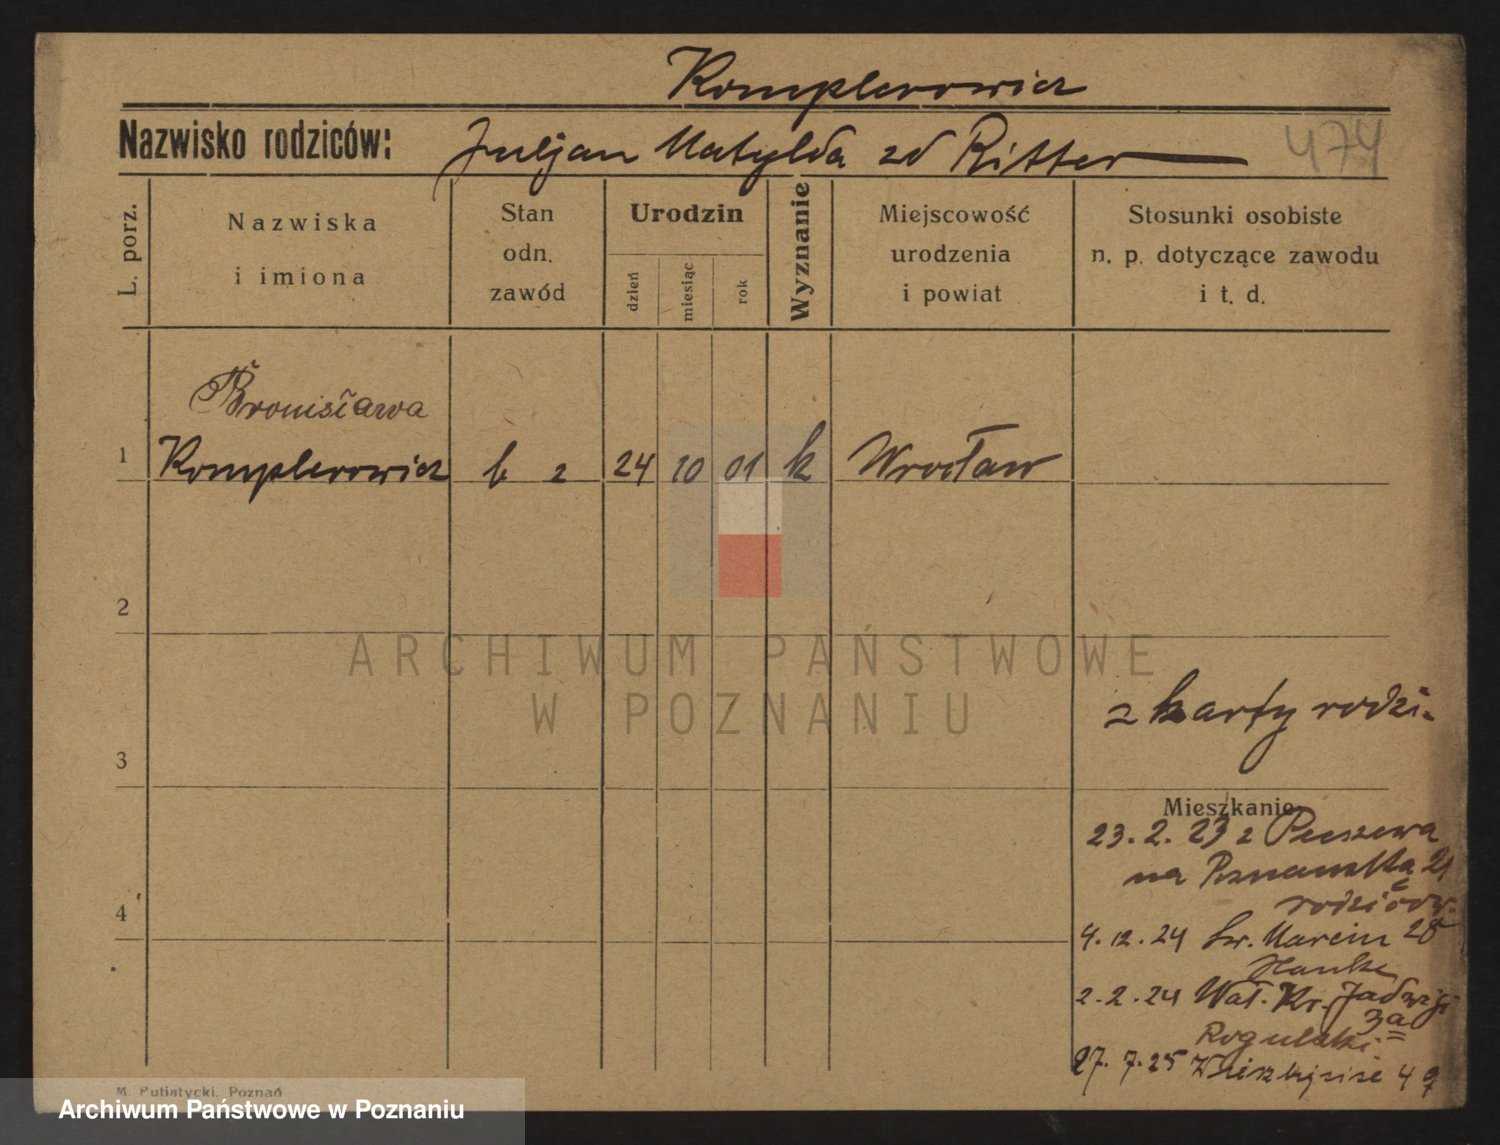 Komplerowicz
Nazwisko rodziców: Juljan Matylda zd Ritter
474
L. porz.
Nazwiska
i imiona
Stan
odn.
zawód
Urodzin
dzień
miesiąc
rok
Wyznanie
Miejscowość
urodzenia
i powiat
Stosunki osobiste
n. p. dotyczące zawodu
i t. d.
Bronisława
1 Komplerowicz b z 24 10 01 k Wrocław
2
ARCHIWUM PAŃSTWOWE
W POZNANIU
z karty rodzi.
3
Mieszkanie
23. 2. 23 z
na 21
rodziców.
4
4. 12. 24 Św. Marcin 28
2. 2. 24 Wał. Kr. Jadwigi
3a
Rogulski
27. 7. 25
M. Putiatycki. Poznań
Archiwum Państwowe w Poznaniu